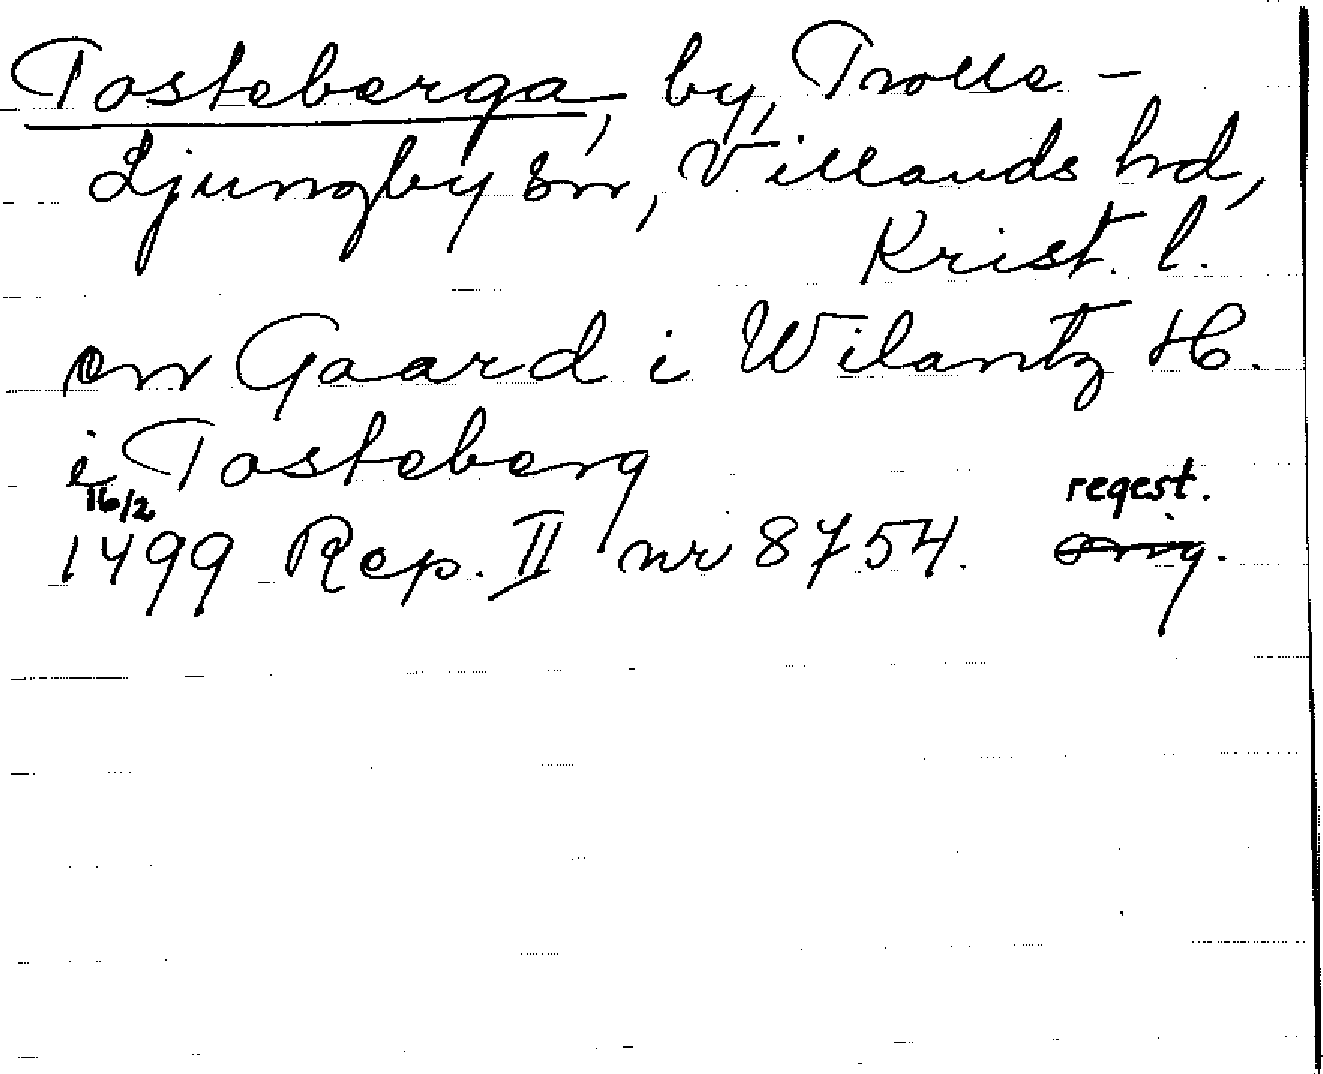 Tosteberga, by, Trolle-
Ljungby sn, Villands hd,
Krist. l.
en Gaard i Wilantz H.
i Tosteberg
16/2 regest.
1499 Rep. II nr 8754. orig.